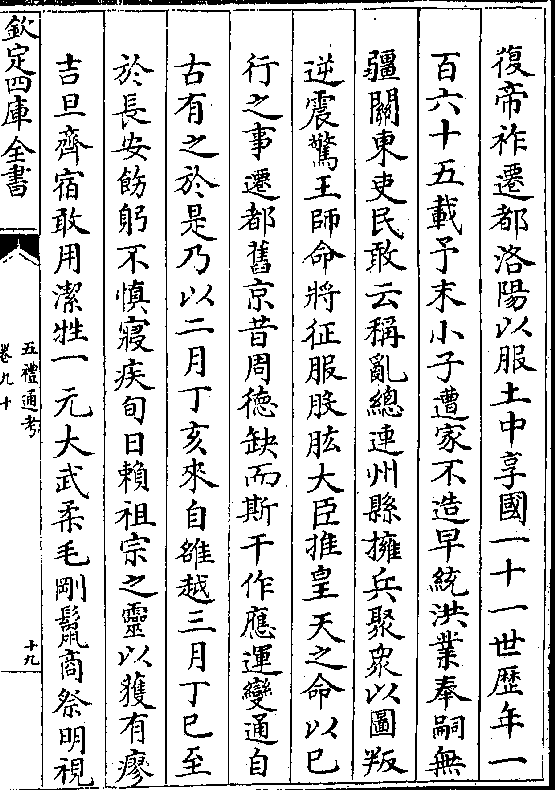 復帝祚遷都洛陽以服土中享國一十一世歴年一
百六十五載予末小子遭家不造早統洪業奉嗣無
疆關東吏民敢云稱亂總連州縣擁兵聚衆以圖叛
逆震驚王師命將征服股肱大臣推皇天之命以已
行之事遷都舊京昔周德缺而斯干作應運變通自
古有之於是乃以二月丁亥來自雒越三月丁巳至
於長安飭躬不慎寢疾旬日賴祖宗之靈以獲有瘳
吉旦齊宿敢用潔牲一元大武柔毛剛鬛商祭明視
欽定四庫全書
五禮通考
卷九十
十九